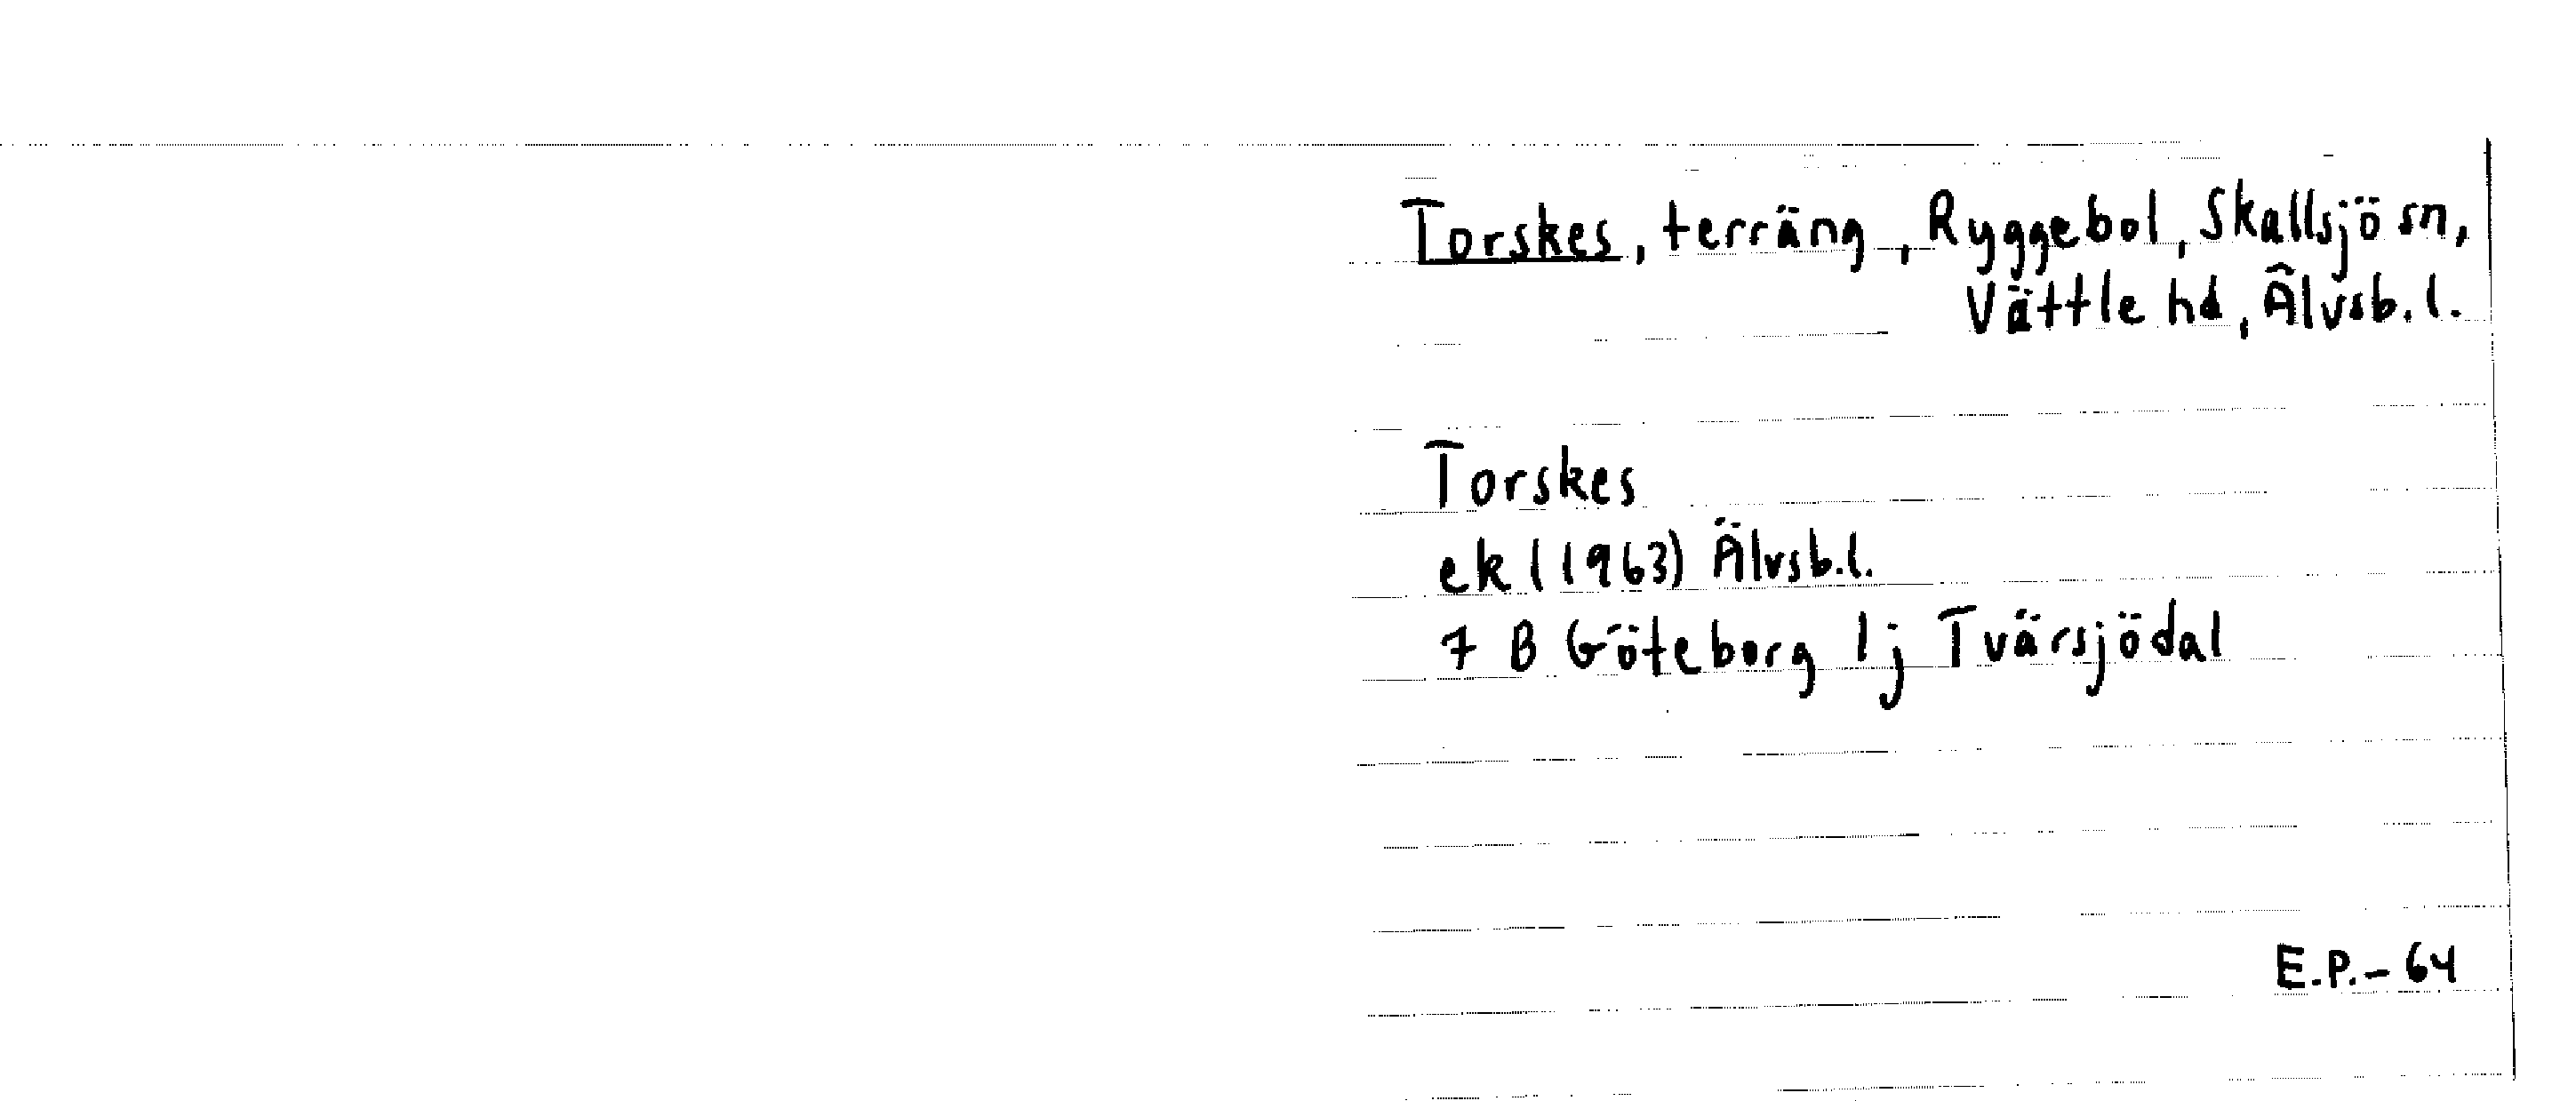 Torskes, terräng, Ryggebol, Skallsjö sn,
Vättle hd, Älvsb. l.
Torskes
ek (1963) Älvsb. l.
7 B Göteborg 1j Tvärsjödal
E.P.-64